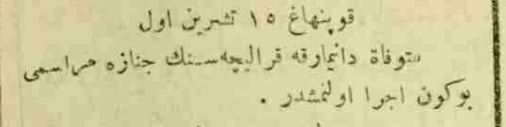 قوپنهاغ ١٥ تشرين اول
متوفاة دانيمارقه قراليچه‌سنك جنازه مراسمى
بوكون اجرا اولنمشدر .